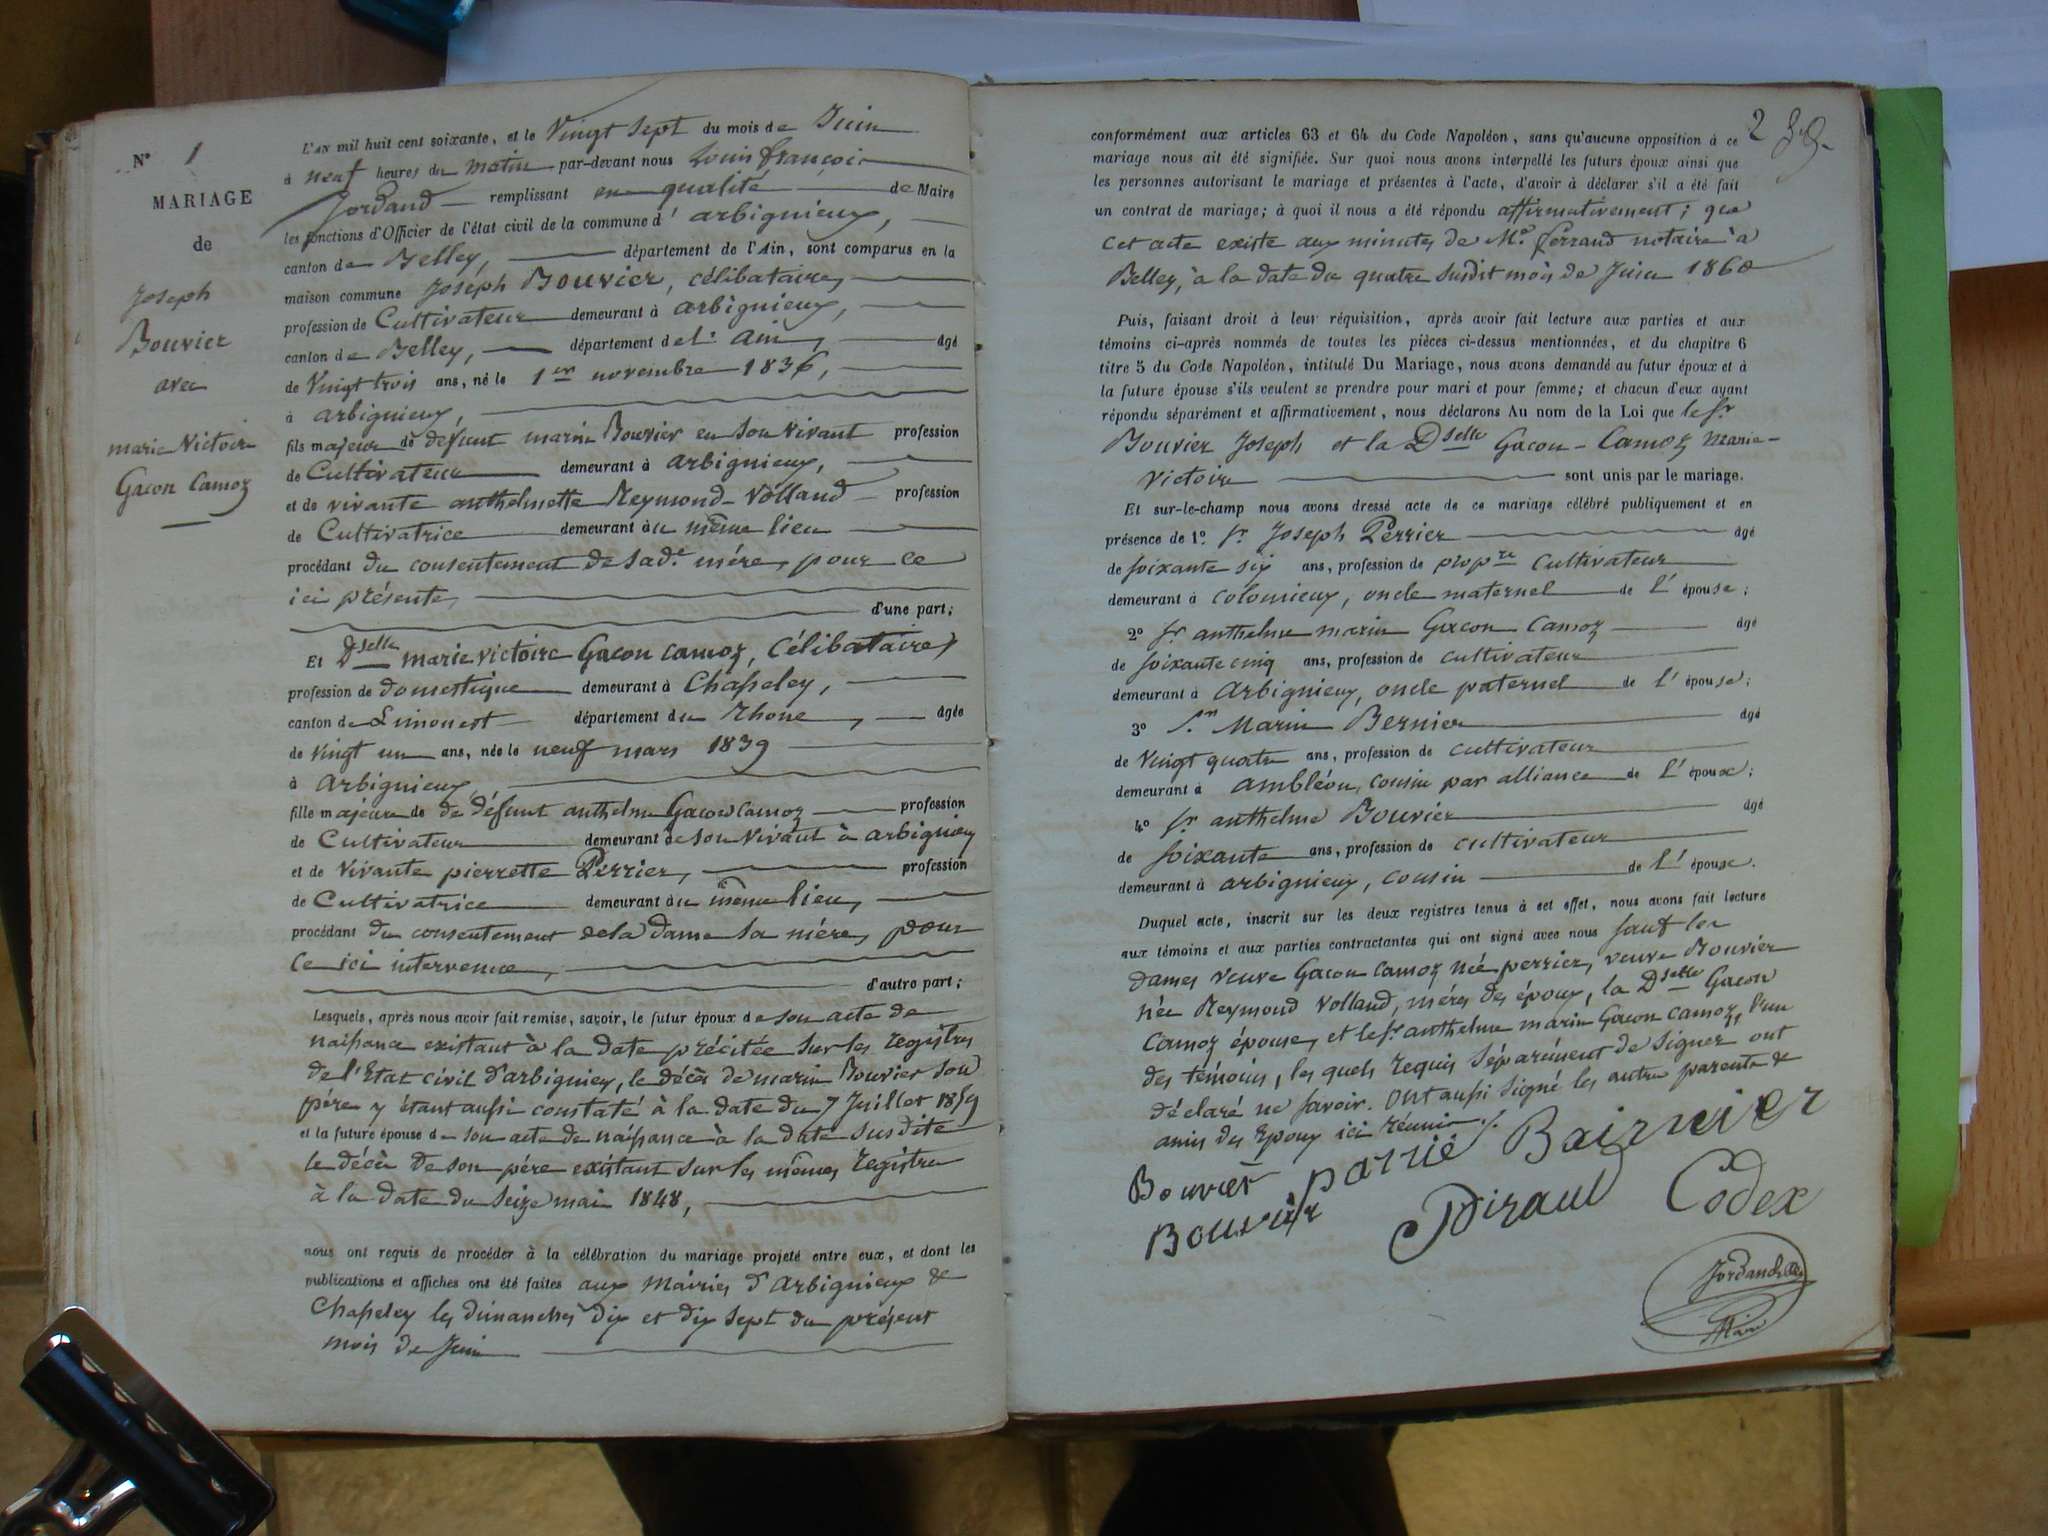 N° 1
MARIAGE
de
Joseph
Bouvier
avec
marie Victoire
Gacon Camoz
L'AN mil huit cent soixante, et le Vingt Sept du mois de Juin
à neuf heures du matin par-devant nous Louis françois
Jordand remplissant en qualité de Maire
les fonctions d'Officier de l'état civil de la commune d' arbignieux,
canton de Belley, département de l'Ain, sont comparus en la
maison commune Joseph Bouvier, célibataire,
profession de Cultivateur demeurant à arbignieux,
canton de Belley, département de l' Ain, âgé
de Vingt trois ans, né le 1er novembre 1836,
à arbignieux,
fils majeur de défunt marin Bouvier en son vivant profession
de Cultivateur demeurant à arbignieux,
et de vivante anthelmette Reymond-Volland profession
de Cultivatrice demeurant au même lieu
procédant du consentement de sad.e mére, pour ce
ici présente, d'une part;
Et Dselle marie victoire Gacon camoz, célibataire,
profession de domestique demeurant à Chasseley,
canton de Limonest département du Rhone, âgée
de Vingt un ans, née le neuf mars 1839
à arbignieux,
fille majeure de de défunt anthelme Gacon camoz profession
de Cultivateur demeurant de son vivant à arbignieu
et de Vivante pierrette Perrier, profession
de Cultivatrice demeurant au même lieu,
procédant du consentement de la dame sa mére, pour
ce ici intervenue,
d'autre part;
Lesquels, après nous avoir fait remise, savoir, le futur époux de son acte de
naissance existant à la date précitée sur les registres
de l'Etat civil d'arbignieu, le décès de marin Bouvier son
pére y étant aussi constaté à la date du 7 Juillet 1859
et la future épouse de son acte de naissance à la date susdite
le décès de son pére existant sur les mêmes registres
à la date du seize mai 1848,
nous ont requis de procéder à la célébration du mariage projeté entre eux, et dont les
publications et affiches ont été faites aux Mairies d'Arbignieux &
Chasseley les dimanches dix et dix sept du présent
mois de Juin
2
conformément aux articles 63 et 64 du Code Napoléon, sans qu'aucune opposition à ce
mariage nous ait été signifiée. Sur quoi nous avons interpellé les futurs époux ainsi que
les personnes autorisant le mariage et présentes à l'acte, d'avoir à déclarer s'il a été fait
un contrat de mariage; à quoi il nous a été répondu affirmativement; que
cet acte existe aux minutes de Me ferrand notaire à
Belley, à la date du quatre susdit mois de Juin 1860
Puis, faisant droit à leur réquisition, après avoir fait lecture aux parties et aux
témoins ci-après nommés de toutes les pièces ci-dessus mentionnées, et du chapitre 6
titre 5 du Code Napoléon, intitulé Du Mariage, nous avons demandé au futur époux et à
la future épouse s'ils veulent se prendre pour mari et pour femme; et chacun d'eux ayant
répondu séparément et affirmativement, nous déclarons Au nom de la Loi que le Sr
Bouvier Joseph et la Dselle Gacon-Camoz Marie-
Victoire sont unis par le mariage.
Et sur-le-champ nous avons dressé acte de ce mariage célébré publiquement et en
présence de 1° Sr Joseph Perrier âgé
de soixante six ans, profession de propre cultivateur
demeurant à colomieux, oncle maternel de l'épouse;
2° Sr anthelme marin Gacon Camoz âgé
de soixante cinq ans, profession de cultivateur
demeurant à arbignieux, oncle paternel de l'épouse;
3° Sr Marin Bernier âgé
de Vingt quatre ans, profession de cultivateur
demeurant à ambléon, cousin par alliance de l'épouse;
4° Sr anthelme Bouvier âgé
de soixante ans, profession de cultivateur
demeurant à arbignieux, cousin de l'épouse.
Duquel acte, inscrit sur les deux registres tenus à cet effet, nous avons fait lecture
aux témoins et aux parties contractantes qui ont signé avec nous sauf les
dames veuve Gacon Camoz née perrier, veuve Bouvier
née Reymond Volland, méres des époux, la Dselle Gacon
Camoz épouse, et le Sr anthelme marin Gacon camoz, l'un
des témoins, les quels requis séparément de signer ont
déclaré ne savoir. Ont aussi signé les autres parents &
amis des Epoux ici réunis./.
Bouvier parrié Bairnier
Bouvier Codex
Maire